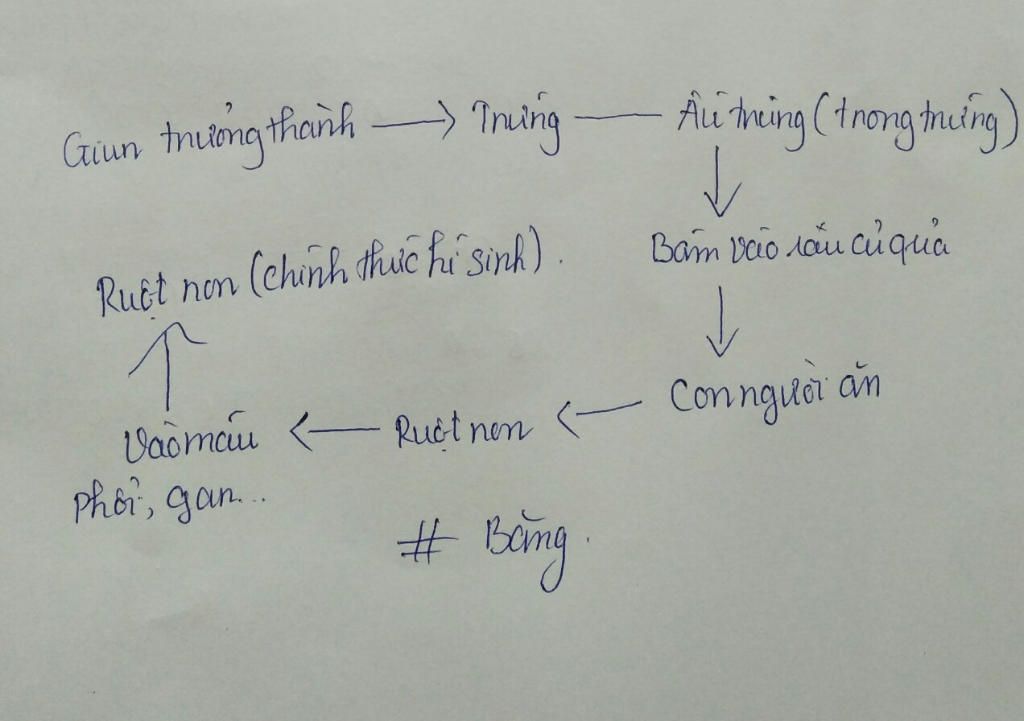 Giun trưởng thành → Trứng — Ấu trùng (trong trứng)
Bám vào rau củ quả
Ruột non (chính thức kí sinh).
Con người ăn
Vào máu ← Ruột non ←
phổi, gan...
# Bằng.